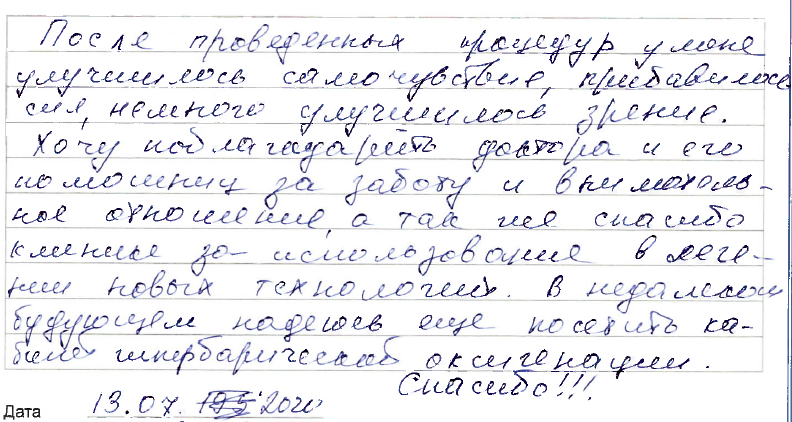 После проведенных процедур у меня
улучшилось самочувствие, прибавилось
сил, немного улучшилось зрение.
Хочу поблагадарить доктора и его
помошниц за заботу и вниматель-
ное отношение, а так же спасибо
клинике за использование в лече-
нии новых технологий. В недалеком
будующем надеюсь еще посетить ка-
бинет гипербарической оксигенации.
Спасибо!!!
Дата 13.07. 2020